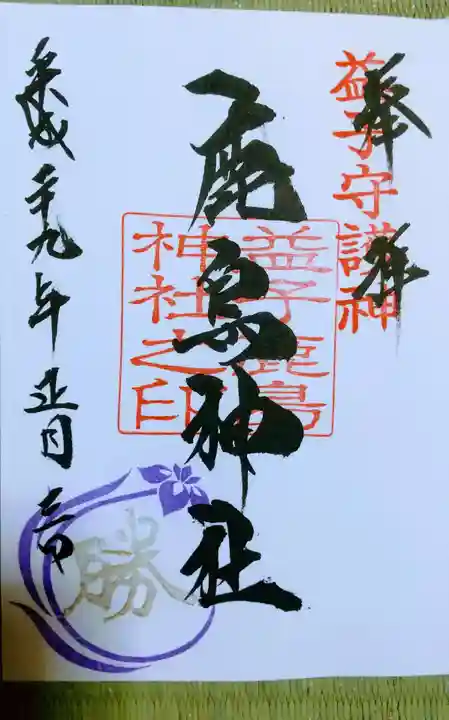 奉拝
益子守護神
鹿島神社
益子鹿島
神社之印
平成二十九年正月三日
勝